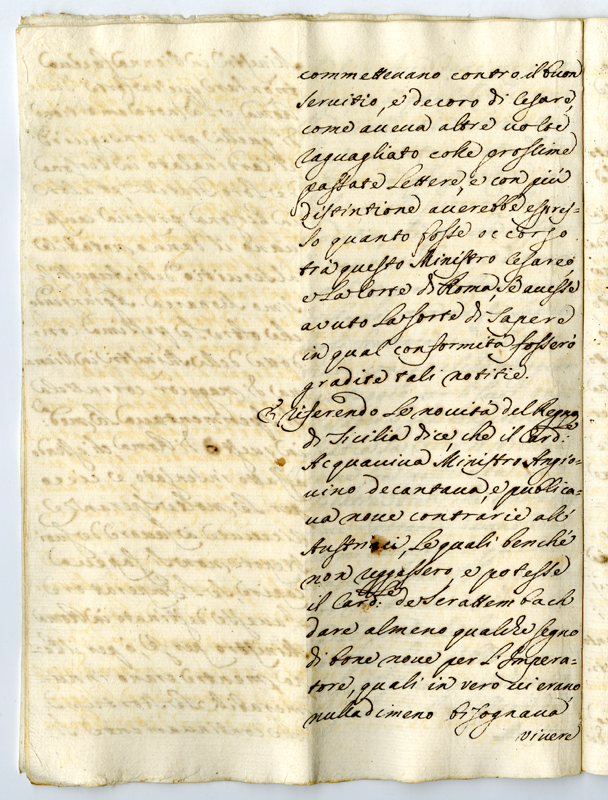 commetteuano contro il buon
Seruitio, e decoro di Cesare,
come aueua altre uolte
raguagliato colle prossime
passate Lettere, e con piú
distintione auerebbe espres=
so quanto fosse occorso
trà questo Ministro Cesareo,
e La Corte di Roma, Se auesse
auuto La sorte di Sapere
in qual conformità fossero
gradite tali notitie.
E riferendo Le nouità del Regno
di Sicilia dice, che il Card:le
Acquauiua Ministro Angio=
uino decantaua, e publica=
ua noue contrarie alt
Austriaci, Le quali benché
non reggessero, e potesse
il Card:le de Scrattembach
dare almeno qualche segno
di bone noue per L'Impera=
tore, quali in uero ui erano
nulladimeno bisognaua
viuere